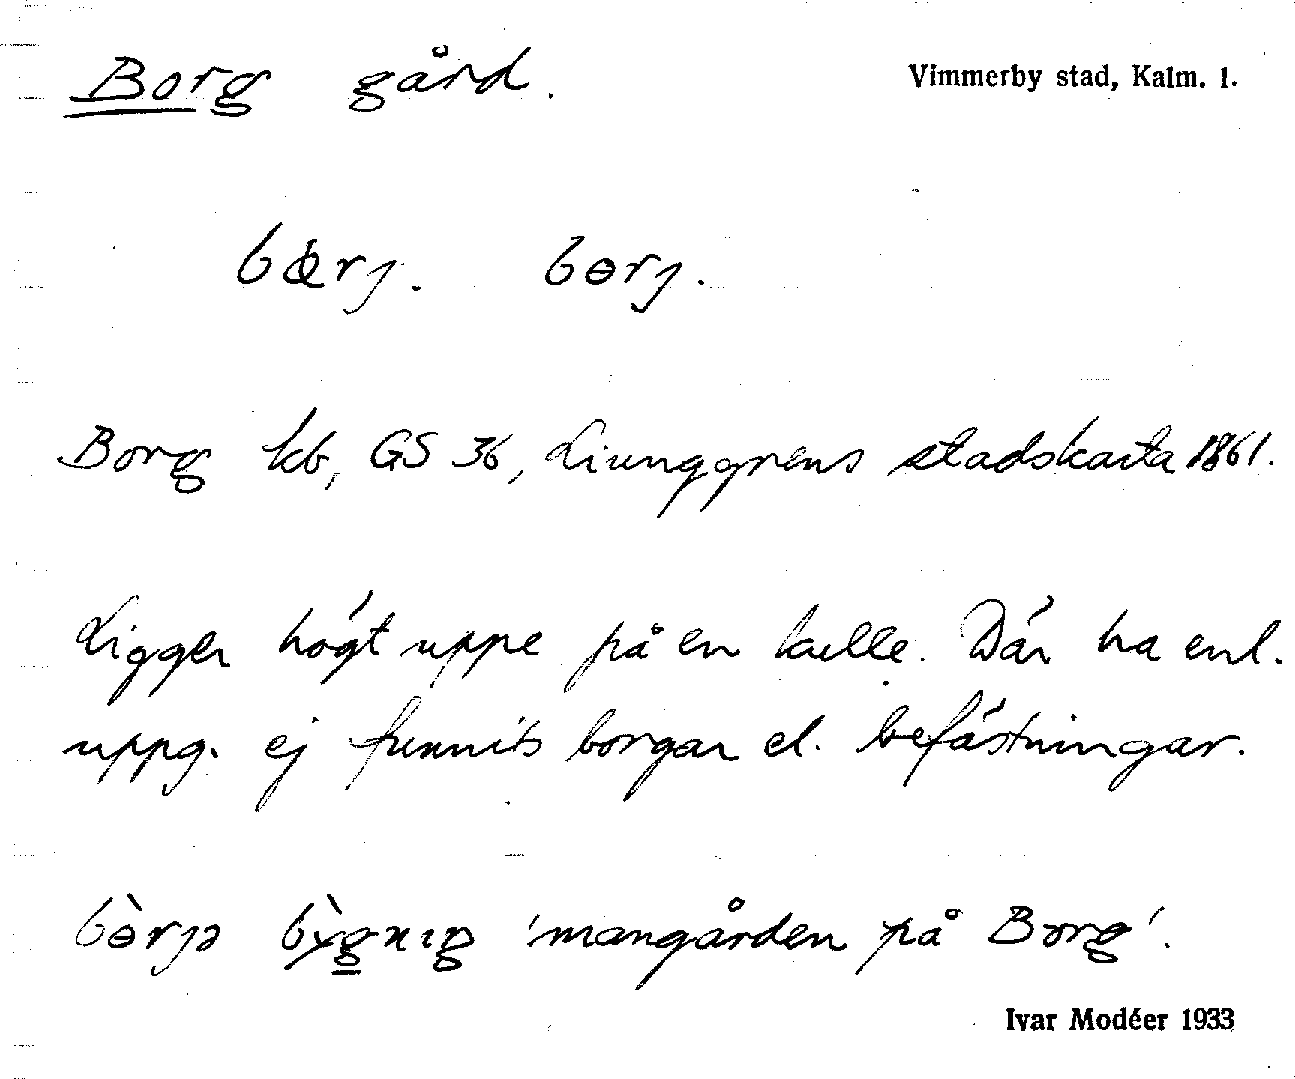 Borg gård.
Vimmerby stad, Kalm. l.
bœrȷ. bɵrȷ.
Borg kb, GS 36, Liunggrens stadskarta 1861.
Ligger högt uppe på en kulle. Där ha enl.
uppg. ej funnits borgar el. befästningar.
'mangården på Borg'.
Ivar Modéer 1933